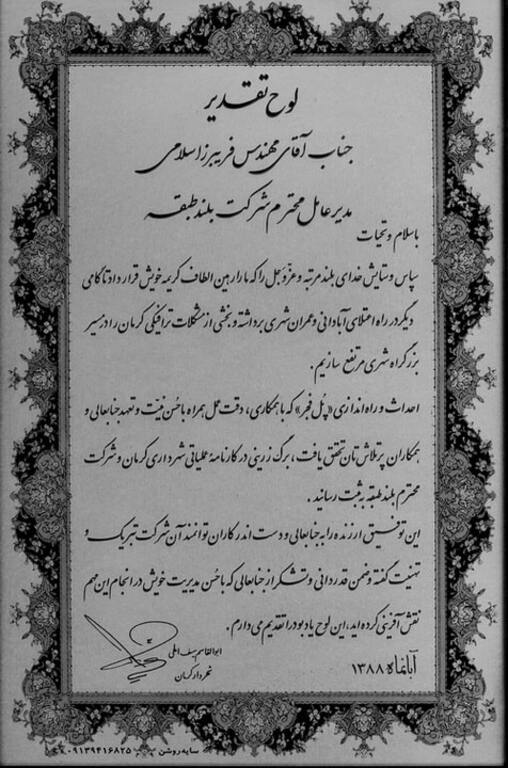 لوح تقدیر
جناب آقای مهندس فریبرز اسلامی
مدیر عامل محترم شرکت بلند طبقه
با سلام و تحیات
سپاس و ستایش خدای بلند مرتبه و عزّ و جل را که ما را رهین الطاف کریمه خویش قرار داد تا گامی
دیگر در راه اعتلای آبادانی و عمران شهری برداشته و بخشی از مشکلات ترافیکی کرمان را در مسیر
بزرگراه شهری مرتفع سازیم.
احداث و راه اندازی «پُل فجر» که با همکاری، دقت عمل همراه با حُسن نیّت و تعهد جنابعالی و
همکاران پرتلاش تان تحقق یافت، برگ زرینی در کارنامهٔ عملیاتی شهرداری کرمان و شرکت
محترم بلند طبقه به ثبت رسانید.
این توفیق ارزنده را به جنابعالی و دست اندرکاران توانمند آن شرکت تبریک و
تهنیت گفته و ضمن قدردانی و تشکر از جنابعالی که با حُسن مدیریت خویش در انجام این مهم
نقش آفرینی کرده اید، این لوح یادبود را تقدیم می دارم.
ابوالقاسم سیف الهی
شهردار کرمان
آبانماه ۱۳۸۸
سایه روشن ۰۹۱۳۹۴۱۶۸۲۵